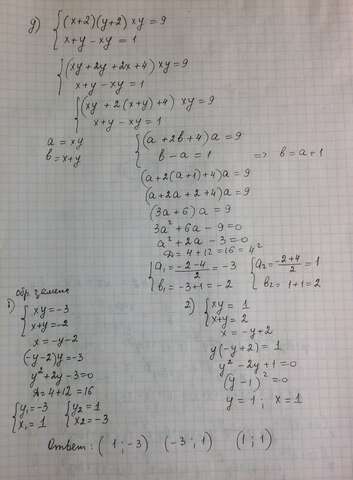 g) { (x+2)(y+2) xy = 9
x+y-xy = 1
{ (xy+2y+2x+4) xy = 9
x+y-xy = 1
{ (xy + 2(x+y)+4) xy = 9
x+y-xy = 1
a = xy
b = x+y
{ (a + 2b + 4) a = 9
b - a = 1 => b = a+1
(a + 2(a+1)+4) a = 9
(a + 2a + 2 + 4) a = 9
(3a + 6) a = 9
3a² + 6a - 9 = 0
a² + 2a - 3 = 0
D = 4 + 12 = 16 = 4²
{ a₁ = (-2-4)/2 = -3
b₁ = -3+1 = -2
{ a₂ = (-2+4)/2 = 1
b₂ = 1+1 = 2
обр. замена
1) { xy = -3
x+y = -2
x = -y-2
(-y-2)y = -3
y² + 2y - 3 = 0
D = 4+12 = 16
{ y₁ = -3
x₁ = 1
{ y₂ = 1
x2 = -3
2) { xy = 1
x+y = 2
x = -y+2
y(-y+2) = 1
y² - 2y + 1 = 0
(y-1)² = 0
y = 1 ; x = 1
Ответ: (1; -3) (-3; 1) (1; 1)